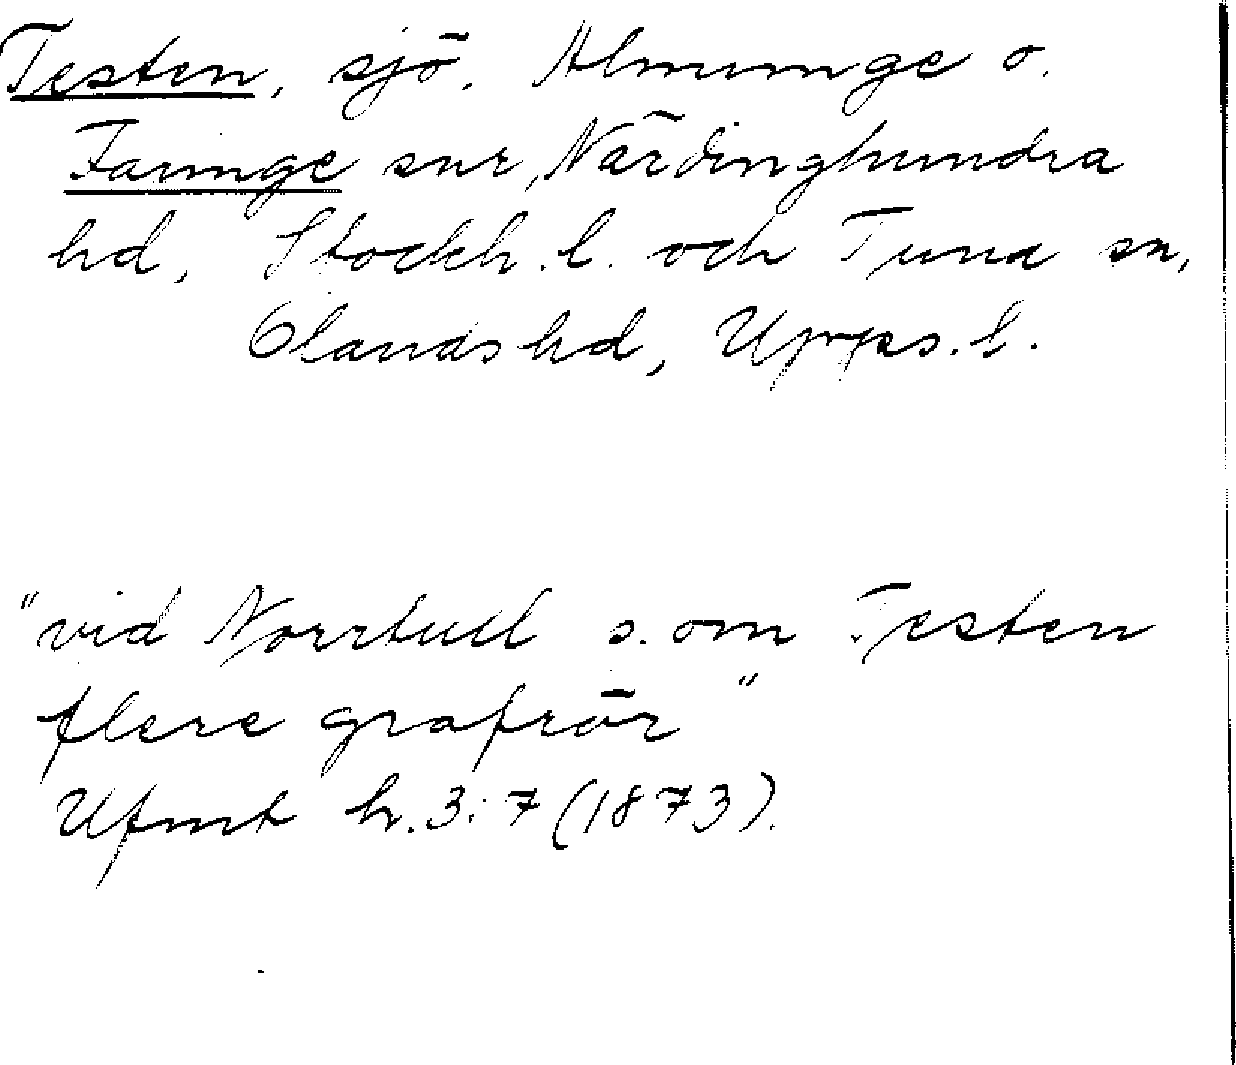 Testen, sjö. Almunge o.
Faringe snr, Närdinghundra
hd, Stockh. l. och Tuna sn,
Olands hd, Upps. l.
"vid Norrtull s. om Testen
flere grafrör"
Ufmt h. 3: 7 (1873).